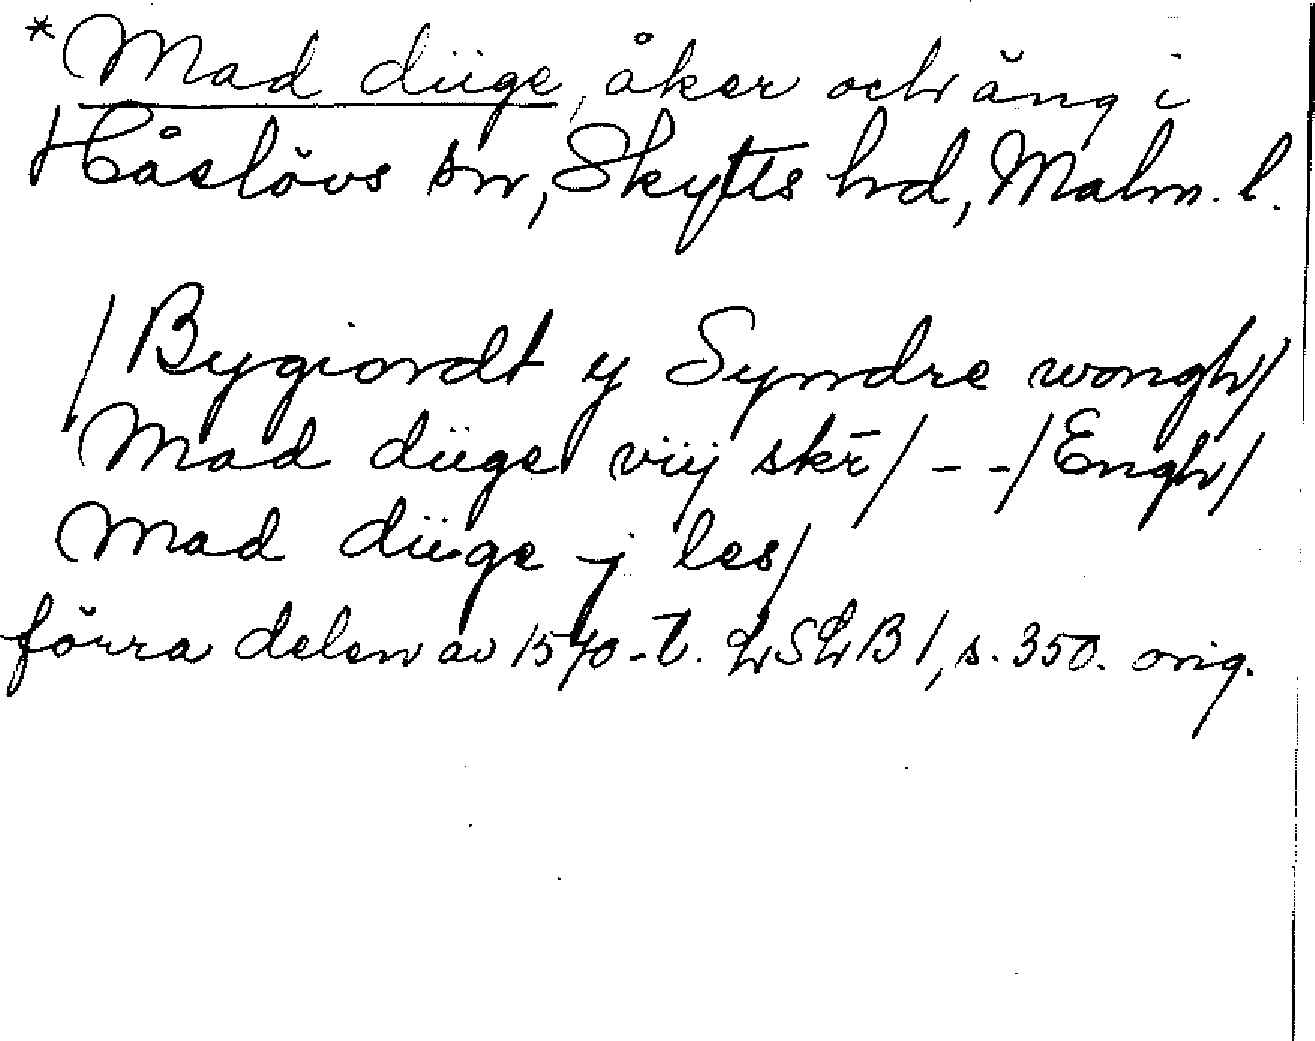 *Mad düge, åker och äng i
Håslövs sn, Skytts hd, Malm. l.
/Bygiordt y Syndre wongh/
Mad düge viij skr̄/ - - /Engh/
Mad düge j les/
förra delen av 1570-t. LSLB 1, s. 350. orig.